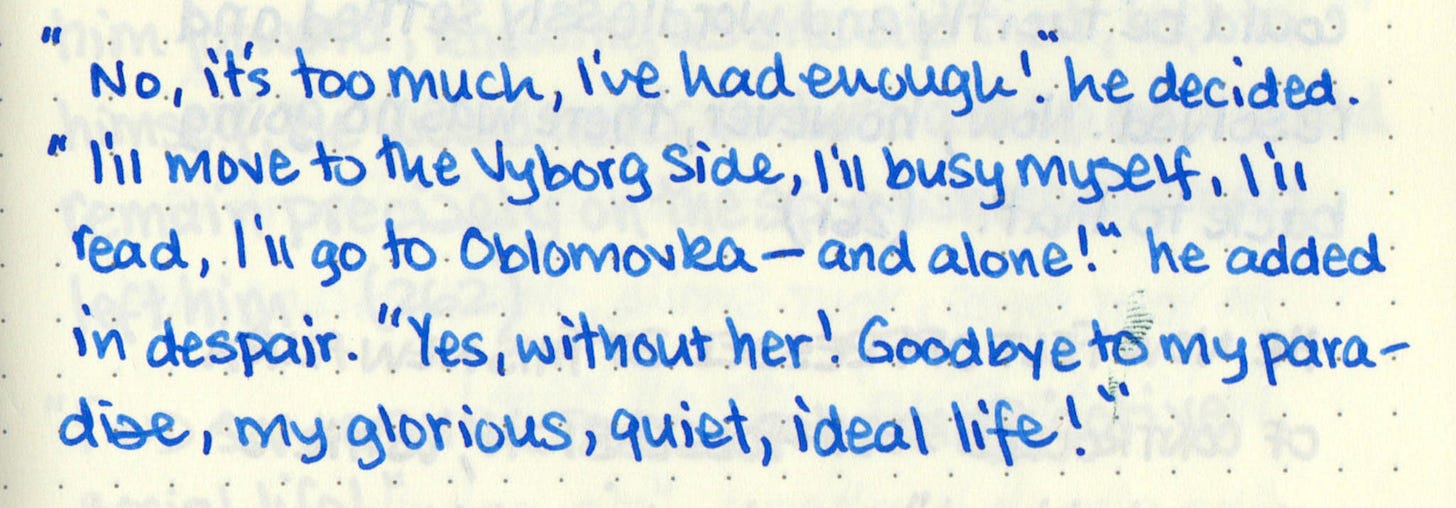 "No, it's too much, I've had enough!" he decided.
"I'll move to the Vyborg Side, I'll busy myself, I'll
read, I'll go to Oblomovka — and alone!" he added
in despair. "Yes, without her! Goodbye to my para-
dise, my glorious, quiet, ideal life!"